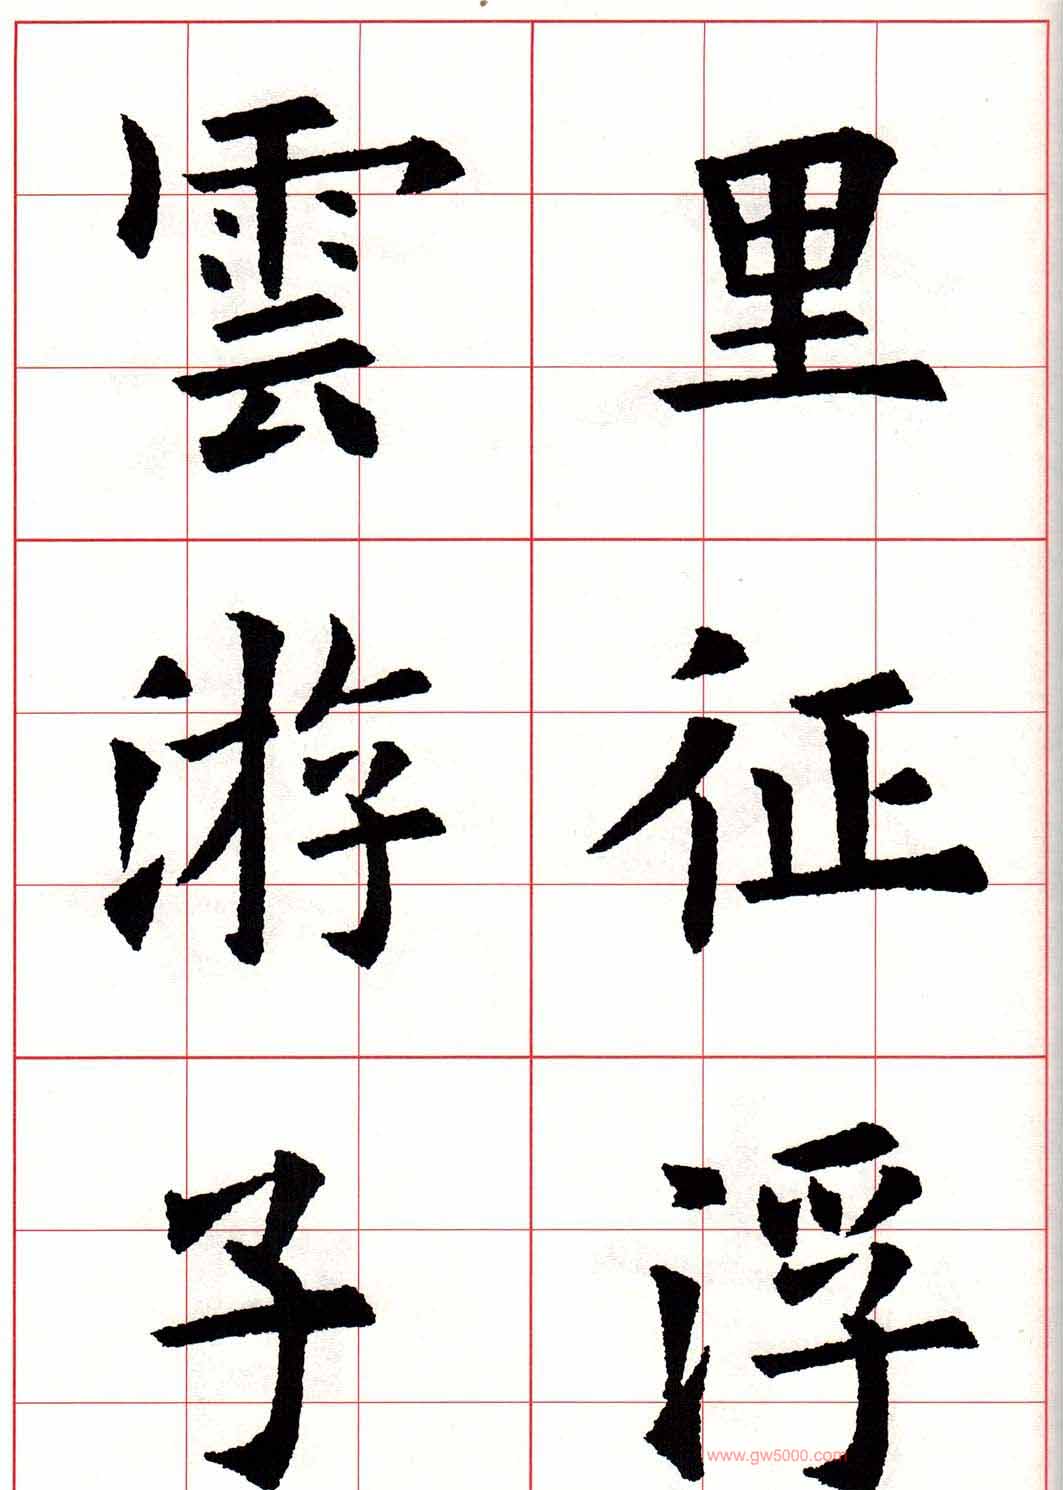 里征浮
雲游子
www.gw5000.com